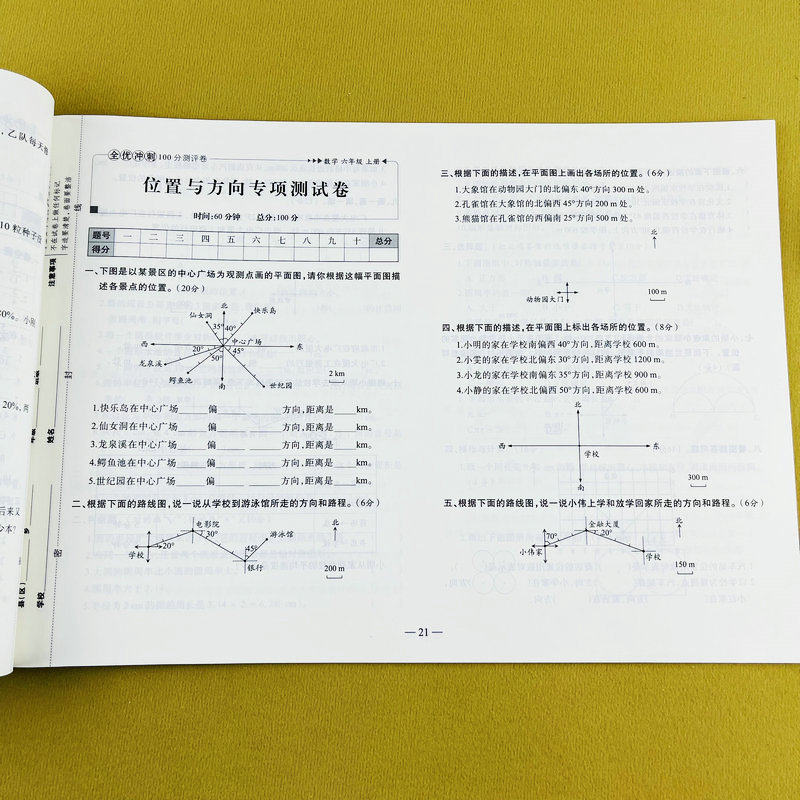 ，乙队每天修
10 粒种子在
80%。小刚
20%，两
后来又
少本？
不在试卷上做任何标记
字迹要清楚，卷面要整洁
注意事项
线
封
密
姓名
学校
县(区)
全优冲刺100分测评卷
数学 六年级 上册
位置与方向专项测试卷
时间:60 分钟 总分:100 分
题号 一 二 三 四 五 六 七 八 九 十 总分
得分
一、下图是以某景区的中心广场为观测点画的平面图,请你根据这幅平面图描
述各景点的位置。(20分)
北
仙女洞
快乐岛
35° 40°
西
中心广场
东
20°
45°
50°
龙泉溪
鳄鱼池
南
世纪园
2 km
1.快乐岛在中心广场____偏____方向,距离是____km。
2.仙女洞在中心广场____偏____方向,距离是____km。
3.龙泉溪在中心广场____偏____方向,距离是____km。
4.鳄鱼池在中心广场____偏____方向,距离是____km。
5.世纪园在中心广场____偏____方向,距离是____km。
二、根据下面的路线图,说一说从学校到游泳馆所走的方向和路程。(6分)
电影院
北
30°
游泳馆
学校
20°
45°
银行
200 m
三、根据下面的描述,在平面图上画出各场所的位置。(6分)
1.大象馆在动物园大门的北偏东 40°方向 300 m 处。
2.孔雀馆在大象馆的北偏西 45°方向 200 m 处。
3.熊猫馆在孔雀馆的西偏南 25°方向 500 m 处。
北
动物园大门
100 m
四、根据下面的描述,在平面图上标出各场所的位置。(8分)
1.小明的家在学校南偏西 40°方向,距离学校 600 m。
2.小雯的家在学校北偏东 30°方向,距离学校 1200 m。
3.小龙的家在学校南偏东 35°方向,距离学校 900 m。
4.小静的家在学校北偏西 50°方向,距离学校 600 m。
北
西
东
学校
南
300 m
五、根据下面的路线图,说一说小伟上学和放学回家所走的方向和路程。(6分)
金融大厦
北
70°
20°
小伟家
学校
150 m
— 21 —